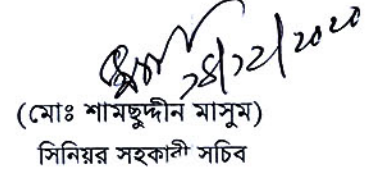 ২৪/১২/২০২০
(মোঃ শামছুদ্দীন মাসুম)
সিনিয়র সহকারী সচিব